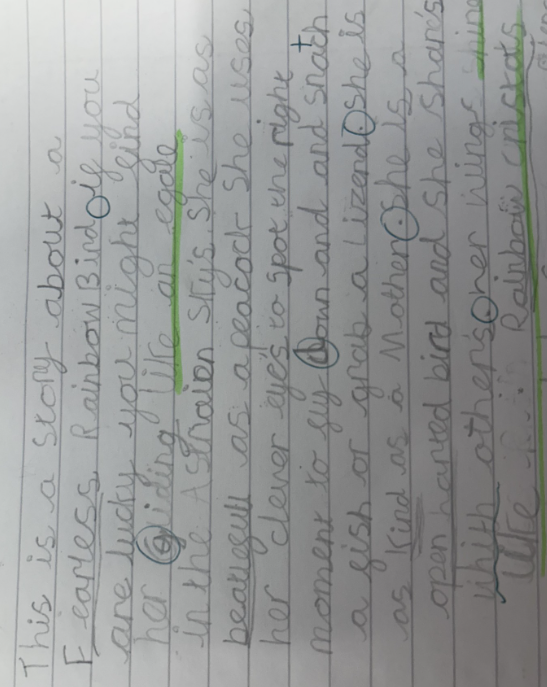 This is a story about a
Fearless RainbowBird. if you
are lucky you might find
her Gliding like an egale
in the Astraion sky's she is as
beatiefull as a peacock she uses
her clever eye's to spot the right
moment to fly Down and and snath
a fish or grab a Lizerd. she is
as kind as a Mother. she is a
open harted bird and she share's
whith other's. her wings shine
like Rainbow cristals